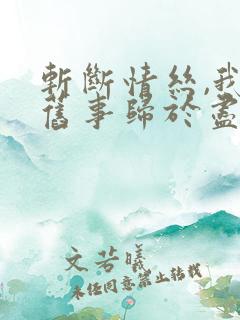 斬斷情絲,我
舊事歸於盡
文芳曦
未经同意禁止转载